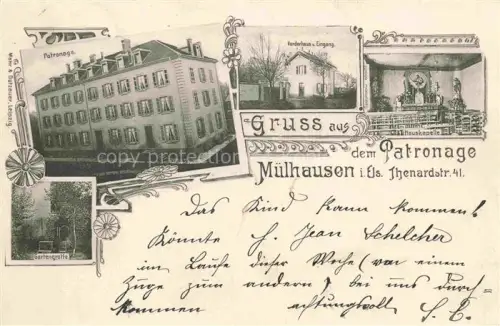 Patronage.
Vorderhaus u. Eingang.
Hauskapelle
Gartengrotte
Gruss aus
dem Patronage
Mülhausen i. Els. Thenardstr. 41.
Das Kind kann kommen!
Könnte H. Jean Schelcher
im Laufe dieser Woche (vor einem
Zuge zum andern) bei uns durch-
kommen achtungsvoll
copyright